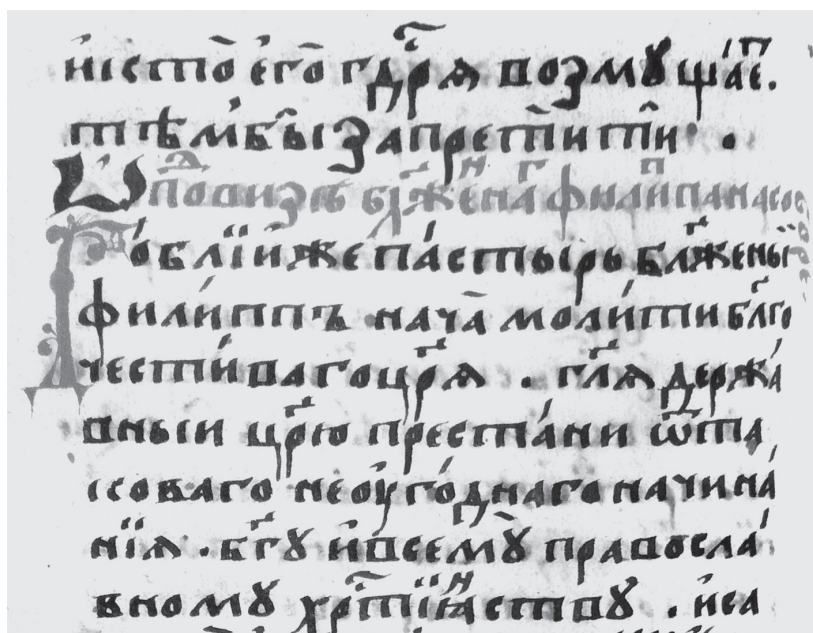 ністо̑ его̑ гдⷭ҇рѧ воꙁмꙋщаеⷮ.
тѣмъ бы ꙁапретити и̑ти .
ѿ подвиꙁѣ бл҃женнагѡ филиппа ꙗко
Доблїи же пастырь бл҃женыи
филиппъ . нача моли́ти бл҃го
чести́ваго цр҃ѧ . гл҃ѧ держа́
вныи цр҃ю преста́ни ѿ та
коваго неоуго́днаго начина́
нїѧ . бг҃ꙋ и̓ всемꙋ̀ правосла́
вномꙋ хрⷭ҇тїаⷩ҇ствꙋ . и̓ са